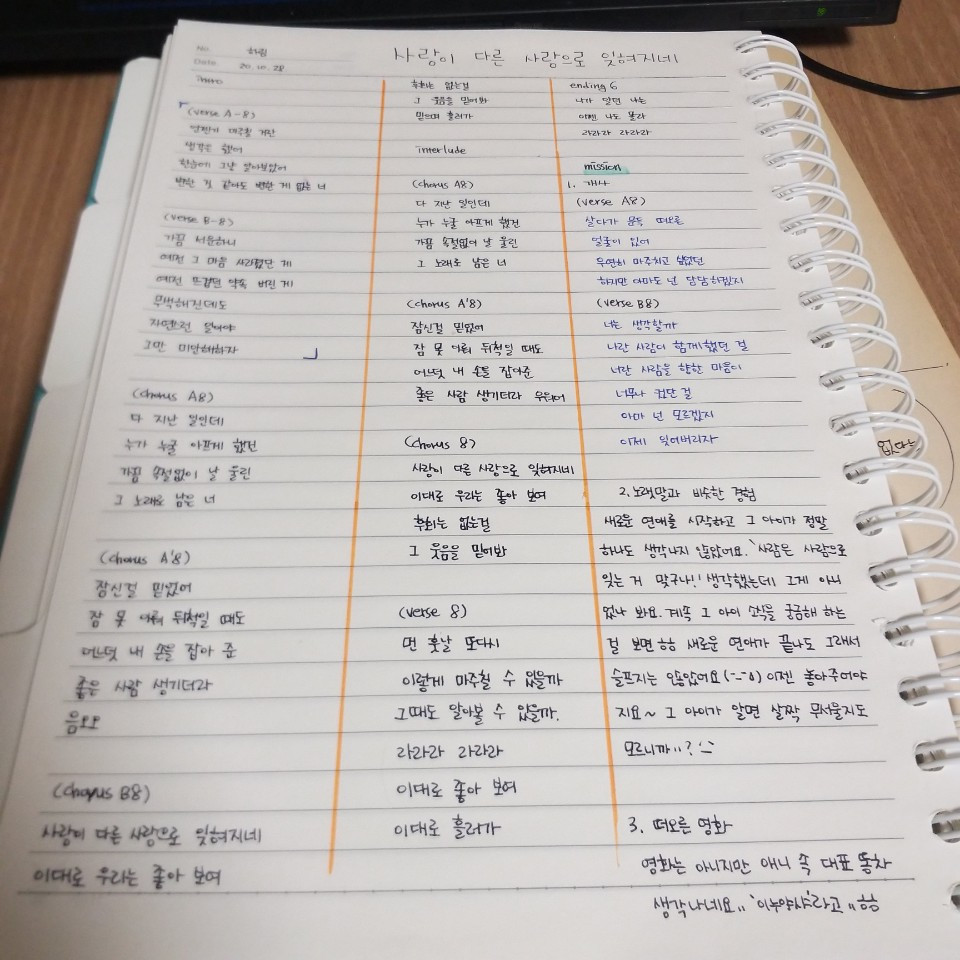 No. 하림
Date. 20.10.28
사랑이 다른 사랑으로 잊혀지네
intro
(verse A-8)
언젠가 마주칠 거란
생각은 했어
한눈에 그냥 알아보았어
변한 것 같아도 변한 게 없는 너
(verse B-8)
가끔 서운하니
예전 그 마음 사라졌단 게
예전 뜨겁던 약속 버린 게
무색해진데도
자연스런 일이야
그만 미안해하자
(chorus A8)
다 지난 일인데
누가 누굴 아프게 했건
가끔 속절없이 날 울린
그 노래로 남은 너
(chorus A'8)
잠신걸 믿었어
잠 못 이뤄 뒤척일 때도
어느덧 내 손을 잡아 준
좋은 사람 생기더라
음오오
(chorus B8)
사랑이 다른 사랑으로 잊혀지네
이대로 우리는 좋아 보여
후회는 없는걸
그 웃음을 믿어봐
믿으며 흘러가
interlude
(chorus A8)
다 지난 일인데
누가 누굴 아프게 했건
가끔 속절없이 날 울린
그 노래로 남은 너
(chorus A'8)
잠신걸 믿었어
잠 못 이뤄 뒤척일 때도
어느덧 내 손을 잡아준
좋은 사람 생기더라
(chorus 8)
사랑이 다른 사랑으로 잊혀지네
이대로 우리는 좋아 보여
후회는 없는걸
그 웃음을 믿어봐
(verse 8)
먼 훗날 또다시
이렇게 마주칠 수 있을까
그때도 알아볼 수 있을까.
라라라 라라라
이대로 좋아 보여
이대로 흘러가
ending 6
니가 알던 나는
이젠 나도 몰라
라라라 라라라
mission
1. 개사
(verse A8)
살다가 문득 떠오른
얼굴이 있어
우연히 마주치고 싶었던
하지만 아마도 넌 담담하겠지
(verse B8)
너는 생각할까
나란 사람이 함께했던 걸
너란 사람을 향한 마음이
너무나 컸단 걸
아마 넌 모르겠지
이제 잊어버리자
2. 노랫말과 비슷한 경험
새로운 연애를 시작하고 그 아이가 정말
하나도 생각나지 않았어요. '사람은 사람으로
잊는 거 맞구나!' 생각했는데 그게 아니
었나 봐요. 계속 그 아이 소식을 궁금해 하는
걸 보면 ㅎㅎ 새로운 연애가 끝나도 그래서
슬프지는 않았어요 이젠 놓아주어야
지요~ 그 아이가 알면 살짝 무서울지도
모르니까..?
3. 떠오른 영화
영화는 아니지만 애니 속 대표 똥차
생각나네요.. '이누야샤'라고.. ㅎㅎ
없다는